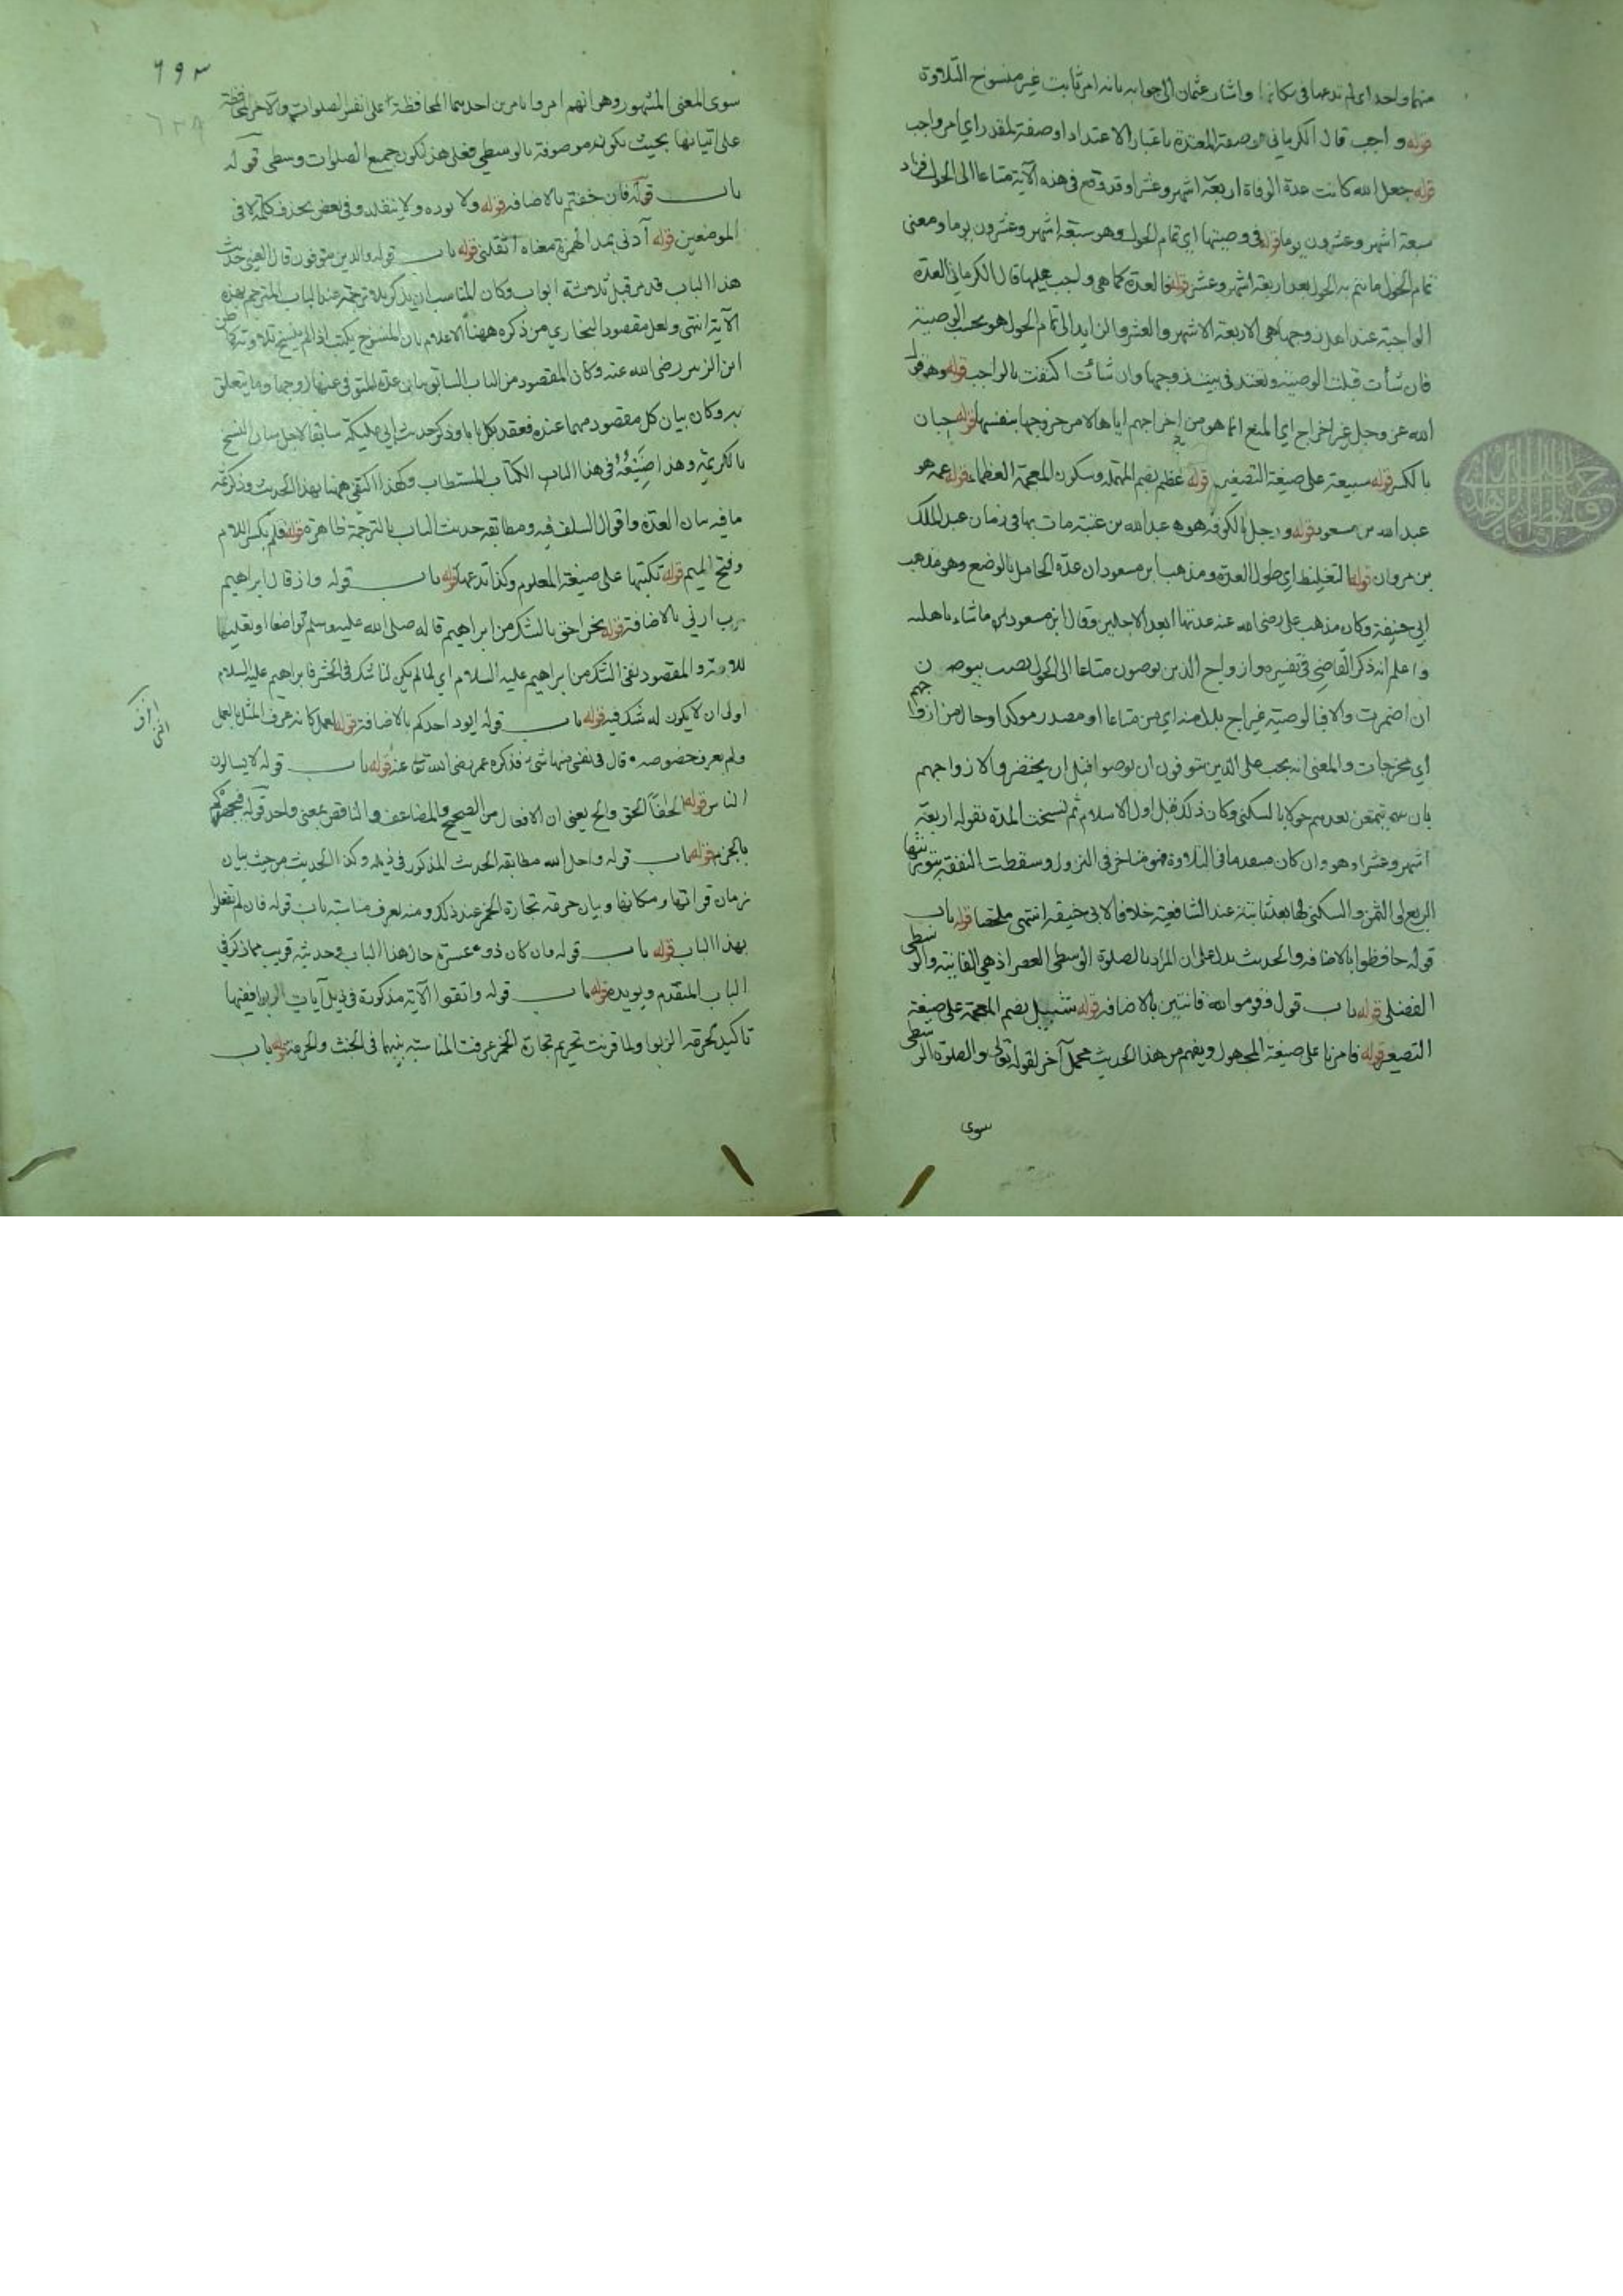 منهما واحد اي لم تدعها في مكانها واشار عثمان الى جوابه بانه امر ثابت غير منسوخ التلاوة
قوله واجب قال الكرماني وصفة المعتدة باعتبار الاعتداد او صفة لمقدر اي امر واجب
قوله جعل الله كانت عدة الوفاة اربعة اشهر وعشرا وقد وقع في هذه الآية متاعا الى الحول فزاد
سبعة اشهر وعشرون يوما قوله في وصيتها اي تمام الحول وهو سبعة اشهر وعشرون يوما ومعنى
تمام الحول ما يتم به الحول بعد اربعة اشهر وعشر قوله فالعدة كما هي واجب عليها قال الكرماني العدة
الواجبة عند اهل زوجها هي الاربعة الاشهر والعشر والزايد الى تمام الحول هو بحسب الوصية
فان شأت قبلت الوصية وتعتد في بيت زوجها وان شائت اكتفت بالواجب قوله وهو قول
الله عز وجل غير اخراج اي المنع انما هو من اخراجهم اياها لا من خروجها بنفسها قوله حبان
بالكسر قوله سبيعة على صيغة التصغير قوله عظم بضم المهملة وسكون المعجمة العظماء قوله عمه هو
عبد الله بن مسعود قوله ورجل بالكوفة هو عبد الله بن عتبة مات بها في زمان عبد الملك
بن مروان قوله التغليظ اي طول العدة ومذهب ابن مسعود ان عدة الحامل بالوضع وهو مذهب
ابي حنيفة وكان مذهب علي رضي الله عنه عدتها ابعد الاجلين وقال ابن مسعود من ماشاء باهلته
واعلم انه ذكر القاضي في تفسيره وازواج الذين يوصون متاعا الى الحول نصب بيوصون
ان اضمرت والا فبالوصية غير اخراج بدل منه اي من متاعا او مصدر موكد او حال من ازواجهم
اي مخرجات والمعنى انه يجب على الذين يتوفون ان يوصوا قبل ان يحتضروا لازواجهم
بان يمتعن بعدهم حولا بالسكنى وكان ذلك قبل اول الاسلام ثم نسخت المدة بقوله اربعة
اشهر وعشرا وهو وان كان متقدما في التلاوة فهو متاخر في النزول وسقطت النفقة بتوريثها
الربع او الثمن والسكنى لها بعد ثابتة عند الشافعية خلافا لابي حنيفة انتهى ملخصا قوله باب
قوله حافظوا بالاضافة والحديث يدل على ان المراد بالصلوة الوسطى العصر اذ هي الفائتة والوسطى
الفضلى قوله باب قول قوموا لله قانتين بالاضافة قوله شبيل بضم المعجمة على صيغة
التصغير قوله فامرنا على صيغة المجهول ويفهم من هذا الحديث محمل آخر لقوله تعالى والصلوة الوسطى
سوى
٦٩٣
٦٣٨
سوى المعنى المشهور وهو انهم امروا بامرين احدهما المحافظة على نفس الصلوات والآخر المحافظة
على اتيانها بحيث تكون موصوفة بالوسطي فعلى هذا تكون جميع الصلوات وسطى قوله
باب قوله فان خفتم بالاضافة قوله ولا يوده ولا يثقله وفي بعض بحذف كلمة لا في
الموضعين قوله آدني بمد الهمزة معناه اثقلني قوله باب قوله والذين يتوفون قال العيني حديث
هذا الباب قد مر قبل ثلاثة ابواب وكان المناسب ان يذكر بلا ترجمة عند الباب المترجم بهذه
الآية انتهى ولعل مقصود البخاري من ذكره ههنا الاعلام بان المنسوخ يكتب اذا لم ينسخ تلاوته كما ظن
ابن الزبير رضي الله عنه وكان المقصود من الباب السابق بيان عدة المتوفى عنها زوجها وما يتعلق
به وكان بيان كل مقصود مهما عنده فعقد بكل بابا وذكر حديث ابن ابي مليكة سابقا لاجل بيان النسخ
بالكريمة وهذا صنيعه في هذا الباب الكتاب المستطاب وكذا اكتفى ههنا بهذا الحديث وذكر ثمه
ما فيه بيان العدة واقوال السلف فيه ومطابقة حديث الباب بالترجمة ظاهرة قوله فلم بكسر اللام
وفتح الميم قوله تكتبها على صيغة المعلوم وكذا تدعها قوله باب قوله واذ قال ابراهيم
رب ارني بالاضافة قوله نحن احق بالشك من ابراهيم قاله صلى الله عليه وسلم تواضعا او تعليما
للامة والمقصود نفي الشك من ابراهيم عليه السلام اي لما لم يكن لنا شك في الحشر فابراهيم عليه السلام
اولى ان لا يكون له شك فيه قوله باب قوله ايود احدكم بالاضافة قوله لعمل كانه عرف المثل بالعمل
ولم يعرف خصوصه قال في نفسي منها شيء فذكره عمر رضي الله تعالى عنه قوله باب قوله لا يسالون
الناس قوله الحافا الحق والح يعني ان الافعال من الصحيح والمضاعف والناقص بمعنى واحد قوله فيحفكم
بالجزم قوله باب قوله واحل الله مطابقة الحديث المذكور في ذيله وكذا الحديث من حيث بيان
زمان قراءتها ومكانها وبيان حرمة تجارة الخمر عند ذلك ومنه يعرف مناسبة باب قوله فان لم تفعلوا
بهذا الباب قوله باب قوله وان كان ذو عسرة حال هذا الباب وحديثه قريب مما ذكر في
الباب المتقدم ويويده قوله باب قوله واتقوا الآية مذكورة في ذيل آيات الربوا ففيها
تاكيد لحرمة الربوا ولما قرنت تحريم تجارة الخمر عرفت المناسبة بينهما في الخبث والحرمة قوله باب